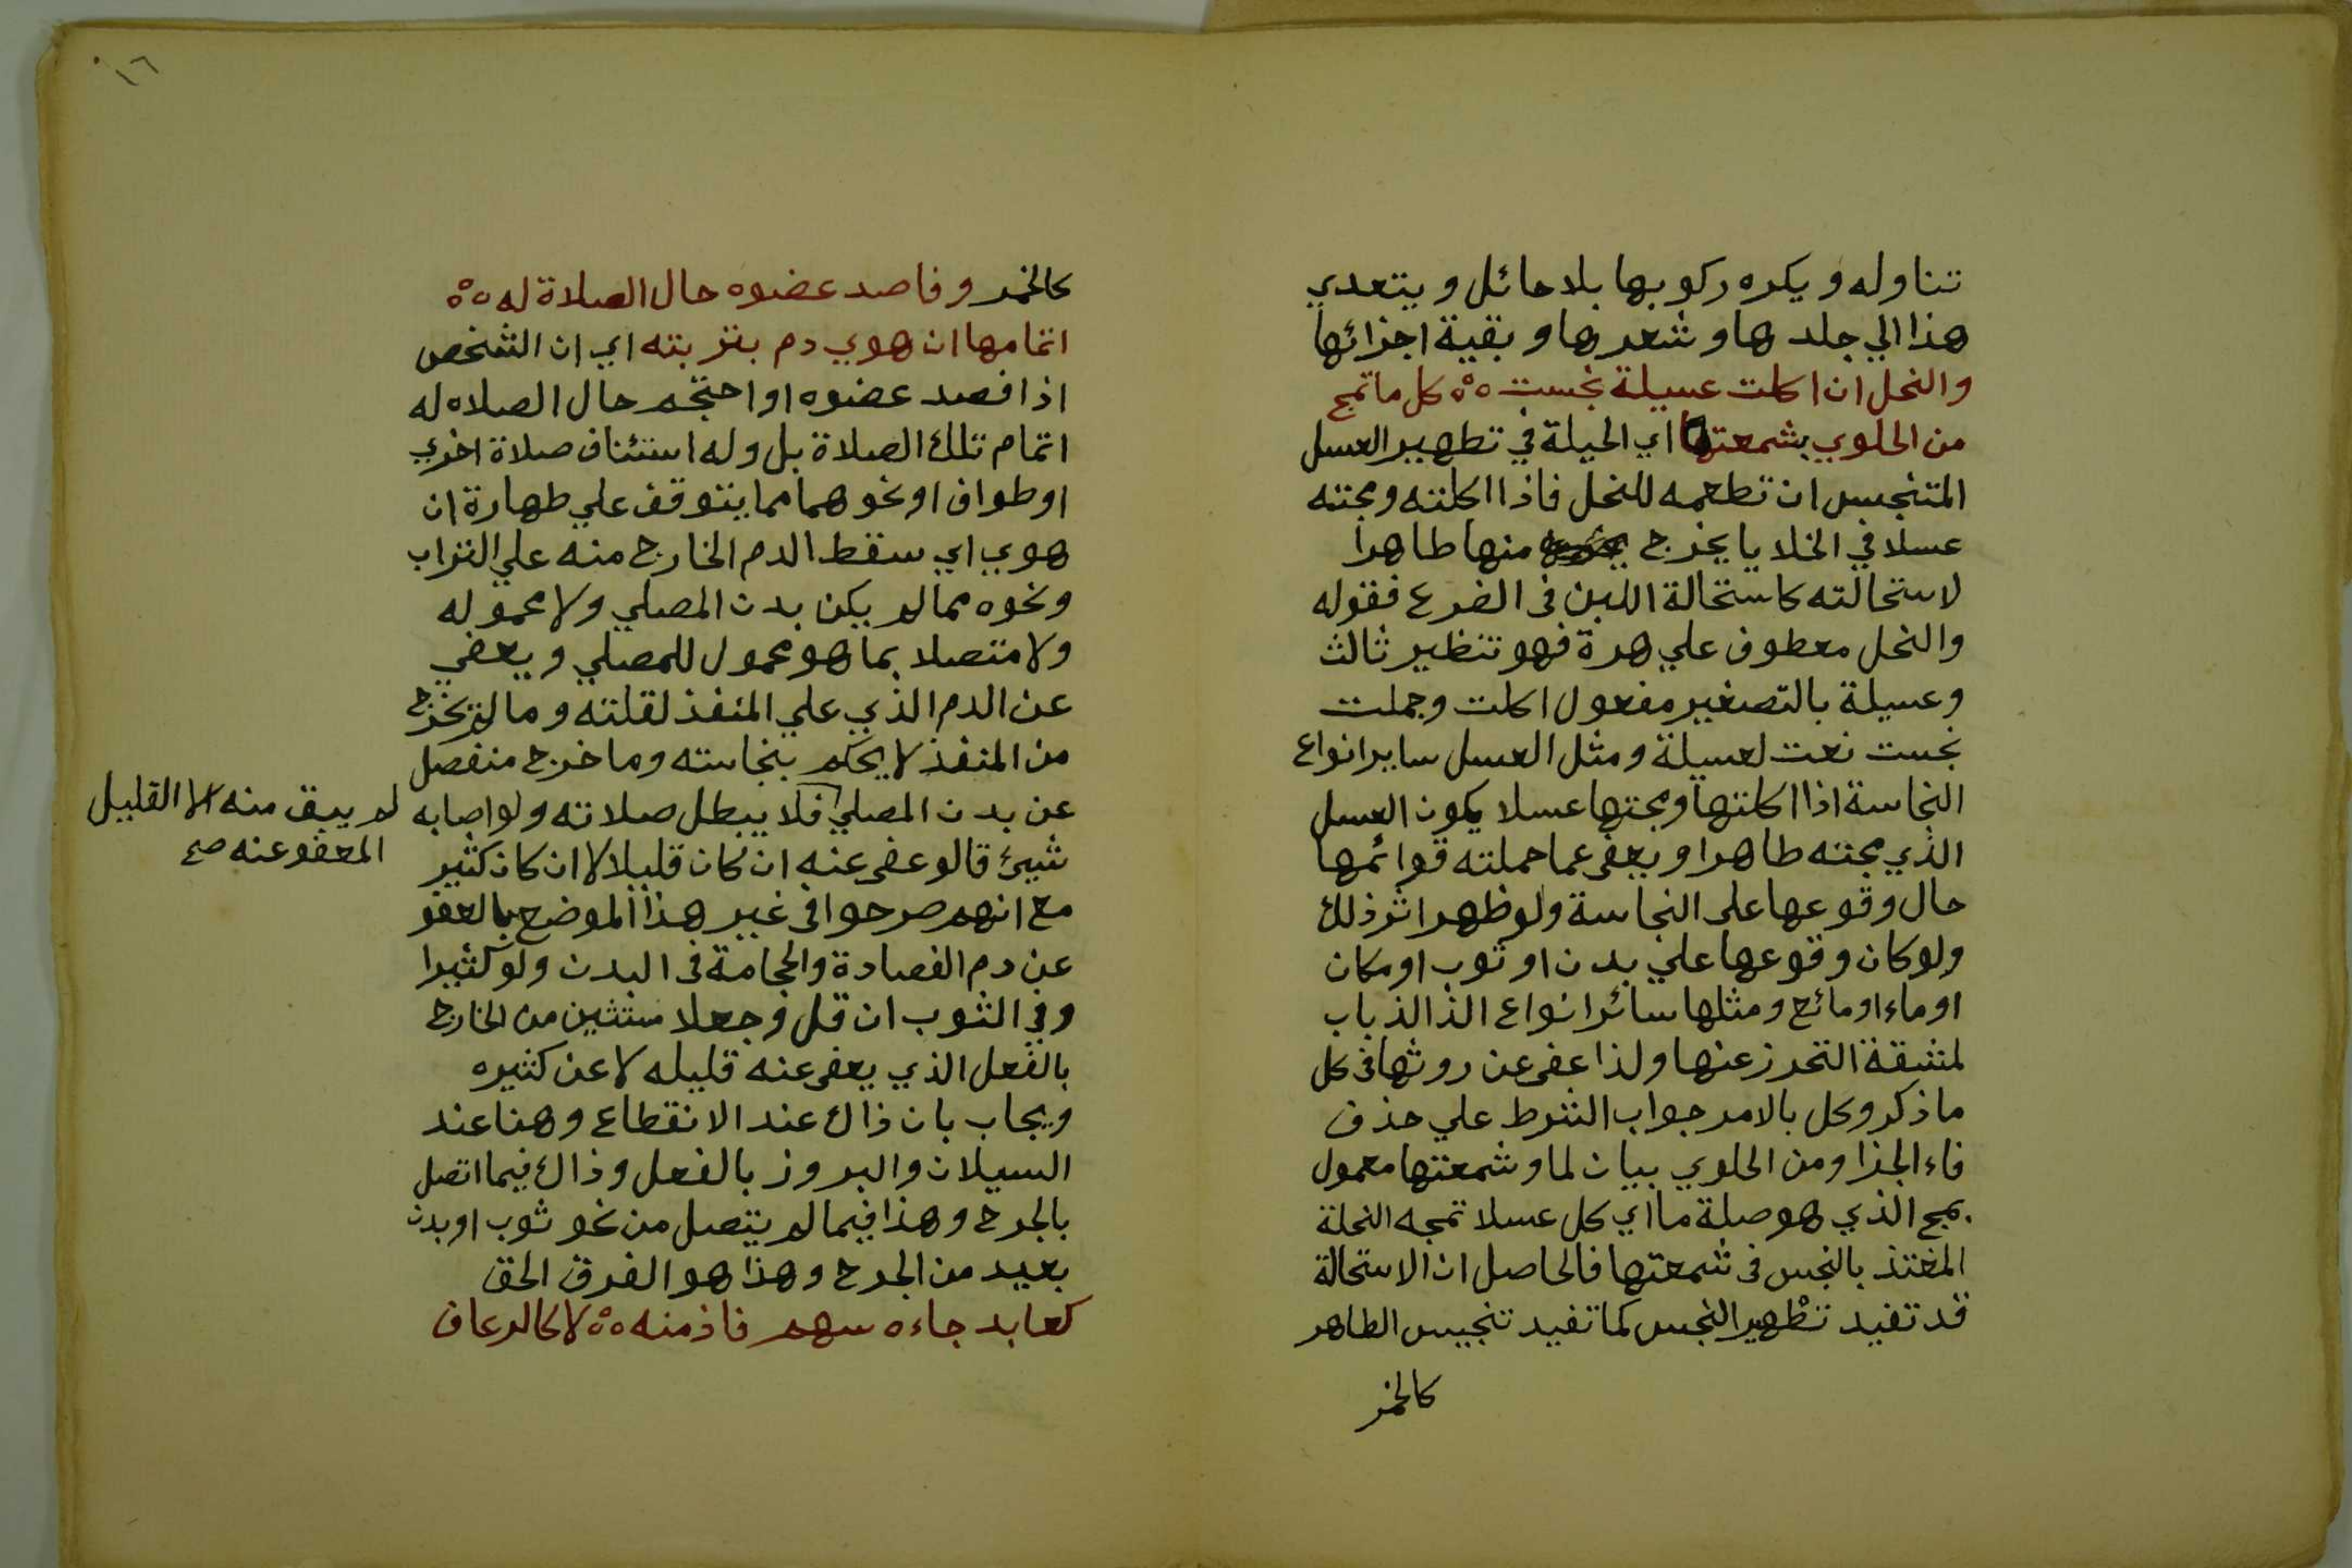 تناوله ويكره ركوبها بلا حائل ويتعدي
هذا الي جلدها وشعرها وبقية اجزائها
والنحل ان اكلت عسيلة نجست ٥°٥ كل ما تمج
من الحلوي بشمعتها اي الحيلة في تطهير العسل
المتنجس ان تطعمه للنحل فاذا اكلته ومجته
عسلا في الخلايا يخرج منها طاهرا
لاستحالته كاستحالة اللبن في الضرع فقوله
والنحل معطوف علي هرة فهو تنظير ثالث
وعسيلة بالتصغير مفعول اكلت وجملت
نجست نعت لعسيلة ومثل العسل ساير انواع
النجاسة اذا اكلتها ومجتها عسلا يكون العسل
الذي مجته طاهرا ويعفي عما حملته قوائمها
حال وقوعها على النجاسة ولو ظهر اثر ذلك
ولو كان وقوعها علي بدن او ثوب او مكان
او ماء او مائع ومثلها سائر انواع الذا الذباب
لمشقة التحرز عنها ولذا عفي عن روثها في كل
ما ذكر وكل بالامر جواب الشرط علي حذف
فاء الجزا ومن الحلوي بيان لما وشمعتها معمول
بمج الذي هو صلة ما اي كل عسلا تمجه النحلة
المغتذ بالنجس في شمعتها فالحاصل ان الاستحالة
قد تفيد تطهير النجس كما تفيد تنجيس الطاهر
كالخمر
١٦
كالخمر وفاصد عضوه حال الصلاة له ٥°٥
اتمامها ان هوي دم بتربته اي ان الشخص
اذا فصد عضوه او احتجم حال الصلاه له
اتمام تلك الصلاة بل وله استئناف صلاة اخري
او طواف او نحوهما مما يتوقف علي طهارة ان
هوي اي سقط الدم الخارج منه علي التراب
ونحوه مما لم يكن بدن المصلي ولا محموله
ولا متصلا بما هو محمول للمصلي ويعفي
عن الدم الذي علي المنفذ لقلته وما لم يخرج
من المنفذ لا يحكم بنجاسته وما خرج منفصل
عن بدن المصلي فلا يبطل صلاته ولو اصابه
شيئ قالو عفي عنه ان كان قليلا لا ان كان كثير
مع انهم صرحوا في غير هذا الموضع بالعفو
عن دم الفصادة والحجامة في البدن ولو كثيرا
وفي الثوب ان قل وجعلا مستثنين من الخارج
بالفعل الذي يعفي عنه قليله لا عن كثيره
ويجاب بان ذاك عند الانقطاع وهنا عند
السيلان والبروز بالفعل وذاك فيما اتصل
بالجرح وهذا فيما لم يتصل من نحو ثوب او بدن
بعيد من الجرح وهذا هو الفرق الحق
كعابد جاءه سهم فاذ منه ٥°٥ لا كالرعاف
لم يبق منه الا القليل
المعفو عنه صح